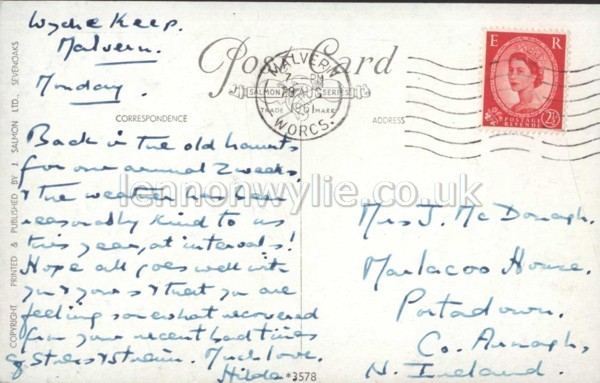 Wyche Keep.
Malvern.
Monday.
Post Card
SALMON SERIES
TRADE MARK
MALVERN
PM
AUG
WORCS.
E R
POSTAGE
REVENUE
2½
CORRESPONDENCE
ADDRESS
COPYRIGHT PRINTED & PUBLISHED BY J. SALMON LTD., SEVENOAKS
Back in the old haunts
for our annual 2 weeks.
& the weather has been
reasonably kind to us
this year, at intervals!
Hope all goes well with
you & yours & that you are
feeling somewhat recovered
from your recent bad times
of stress & strain. Much love.
Hilda
*3578
Mrs J. McDonagh.
Marlacoo House.
Portadown.
Co. Armagh.
N. Ireland.
lennonwylie.co.uk